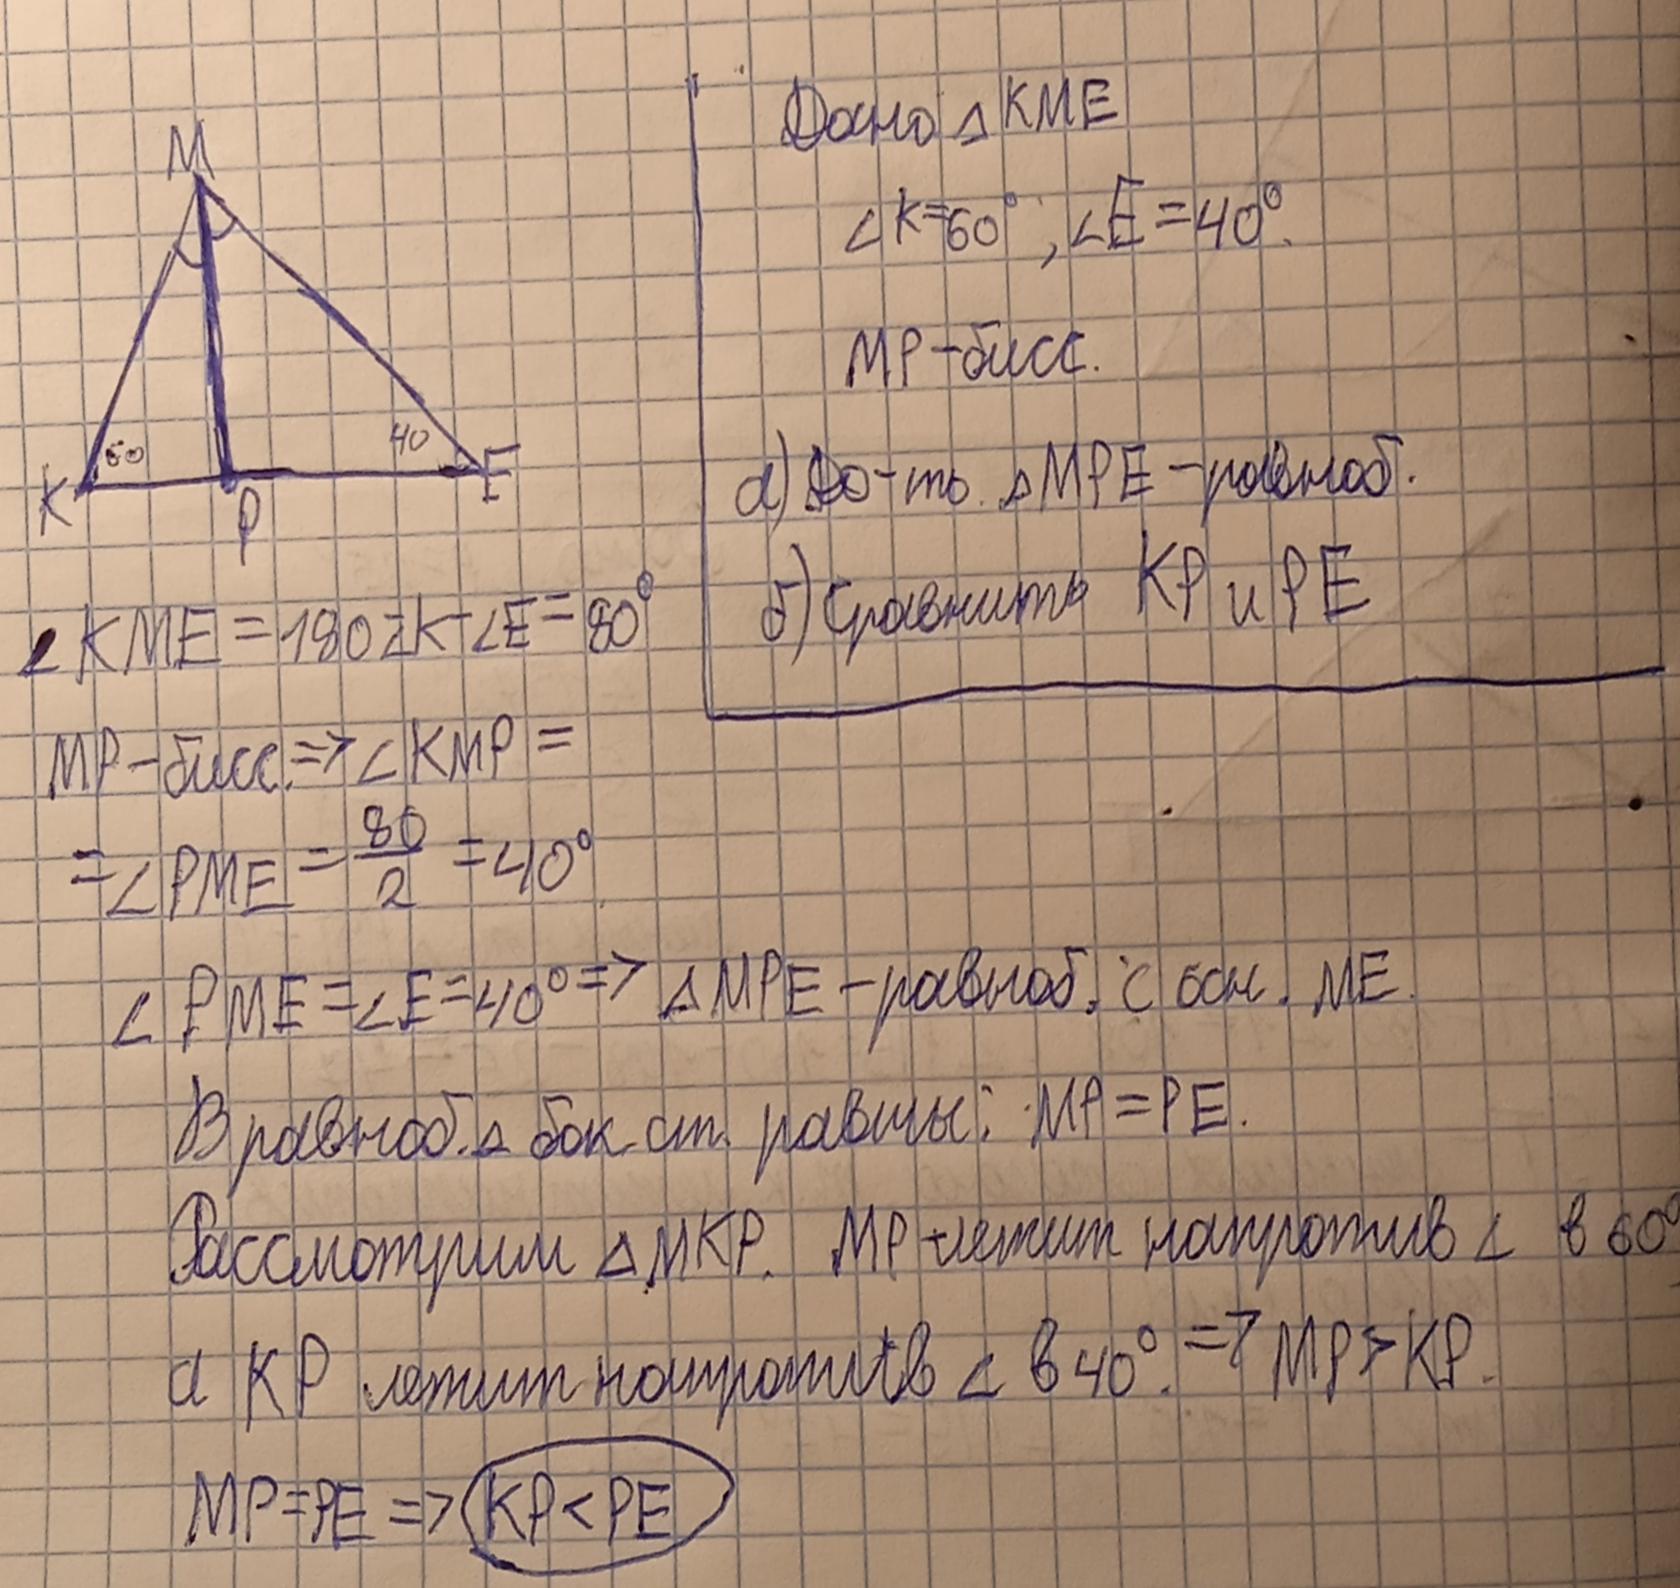 M
K
60
P
40
E
Дано △KME
∠K=60°, ∠E=40°.
MP-бисс.
а) До-ть. △MPE-равноб.
б) Сравнить KP и PE
∠KME=180-∠K-∠E=80°
MP-бисс.=>∠KMP=
=∠PME=80/2=40°
∠PME=∠E=40°=>△MPE-равноб. с осн. ME.
В равноб. △ бок. ст. равны: MP=PE.
Рассмотрим △MKP. MP-лежит напротив ∠ в 60°
а KP лежит напротив ∠ в 40°.=>MP>KP.
MP=PE=>KP<PE